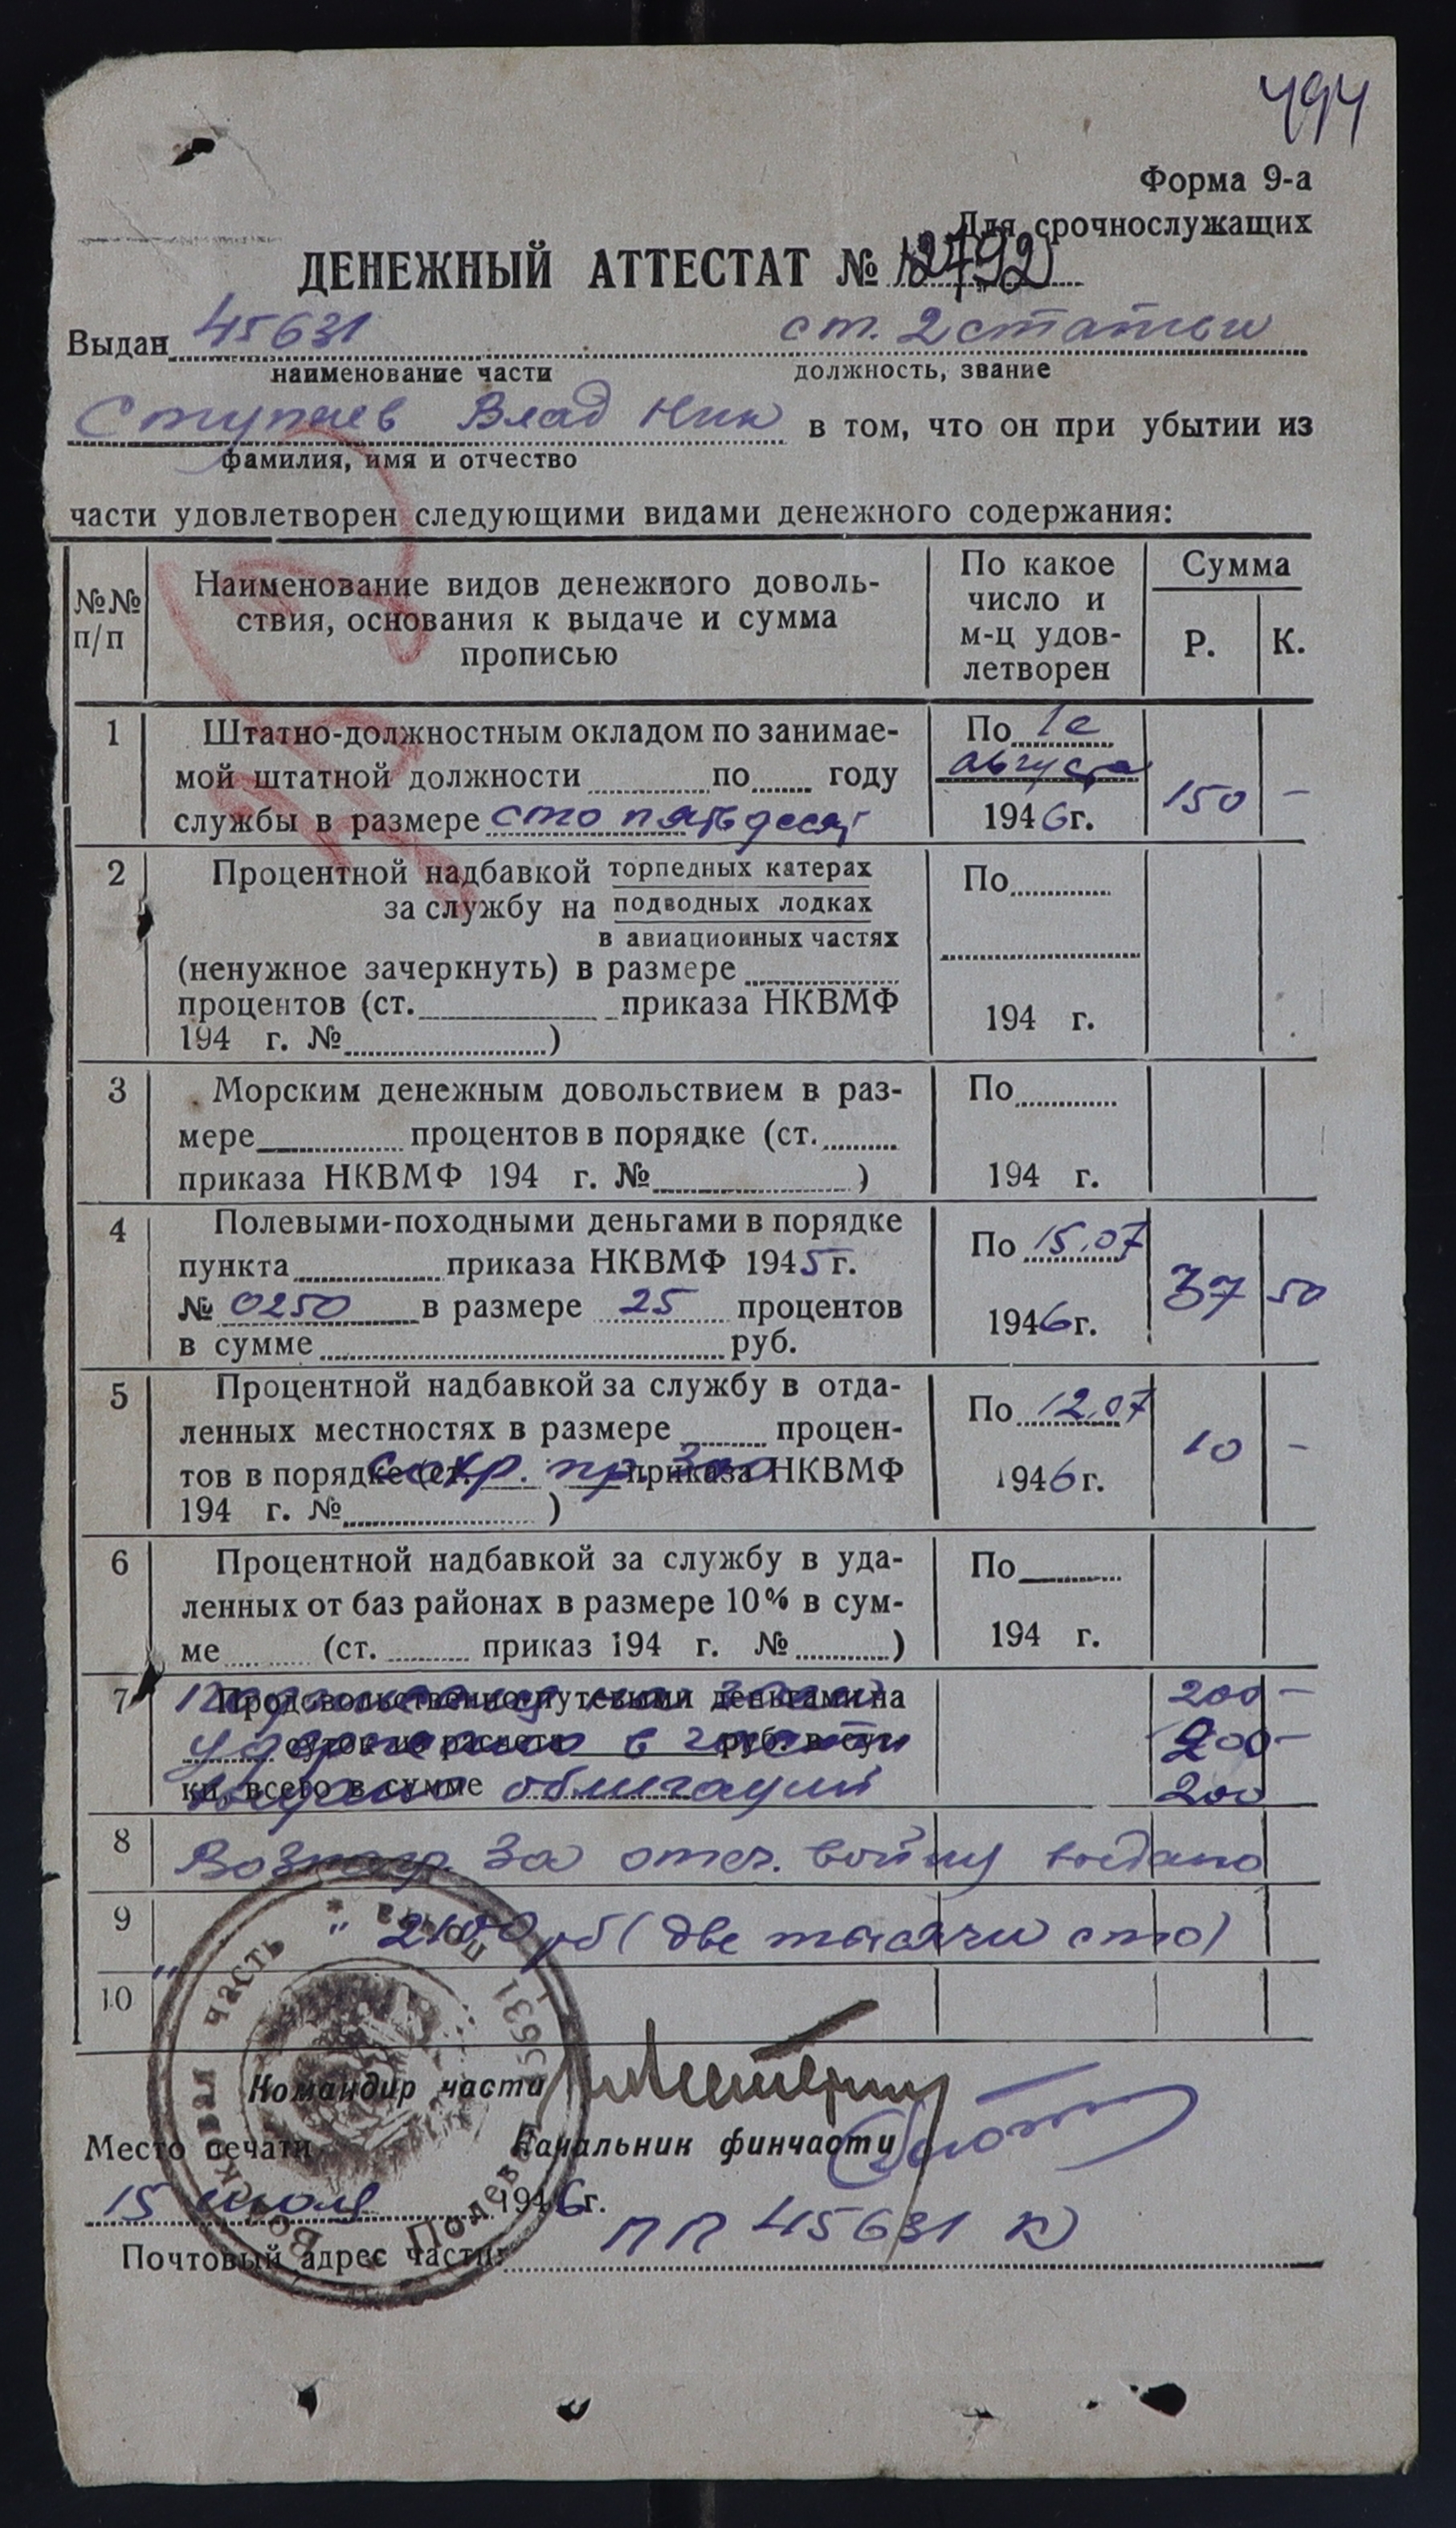 494
Форма 9-а
Для срочнослужащих
ДЕНЕЖНЫЙ АТТЕСТАТ № 2792
Выдан 45631 ст. 2 статьи
наименование части должность, звание
Влад Ник в том, что он при убытии из
фамилия, имя и отчество
части удовлетворен следующими видами денежного содержания:
№№ п/п
Наименование видов денежного доволь-
ствия, основания к выдаче и сумма
прописью
По какое
число и
м-ц удов-
летворен
Сумма
Р. К.
1 Штатно-должностным окладом по занимае-
мой штатной должности по году
службы в размере сто пятьдесят
По 1е
августа
1946 г.
150 -
2 Процентной надбавкой торпедных катерах
за службу на подводных лодках
в авиационных частях
(ненужное зачеркнуть) в размере
процентов (ст. приказа НКВМФ
194 г. № )
По
194 г.
3 Морским денежным довольствием в раз-
мере процентов в порядке (ст.
приказа НКВМФ 194 г. № )
По
194 г.
4 Полевыми-походными деньгами в порядке
пункта приказа НКВМФ 1945 г.
№ 0250 в размере 25 процентов
в сумме руб.
По 15.07
1946 г.
37 50
5 Процентной надбавкой за службу в отда-
ленных местностях в размере процен-
тов в порядке (ст. приказа НКВМФ
194 г. № )
По 12.07
1946 г.
10 -
6 Процентной надбавкой за службу в уда-
ленных от баз районах в размере 10% в сум-
ме (ст. приказ 194 г. № )
По
194 г.
7 Продовольственно-путевыми деньгами на
суток из расчета руб. в сут-
ки, всего в сумме
Подписка на заем 200 -
удержано в части 200 -
Выдано облигаций 200
8 Вознагр. за отеч. войну выдано
9 " 2100 рб (две тысячи сто)
10 "
Командир части
Место печати Начальник финчасти
15 июля 1946 г.
Почтовый адрес части: ПП 45631 К
Войсковая часть * Полевая почта 45631